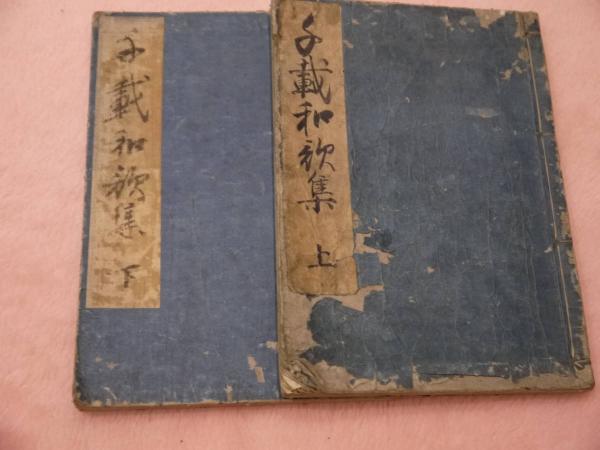 千載和歌集 上
千載和歌集 下